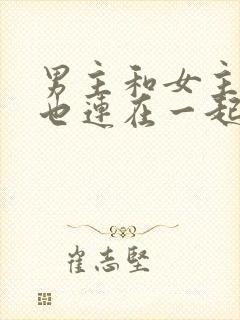 男主和女主
也连在一起
崔志坚